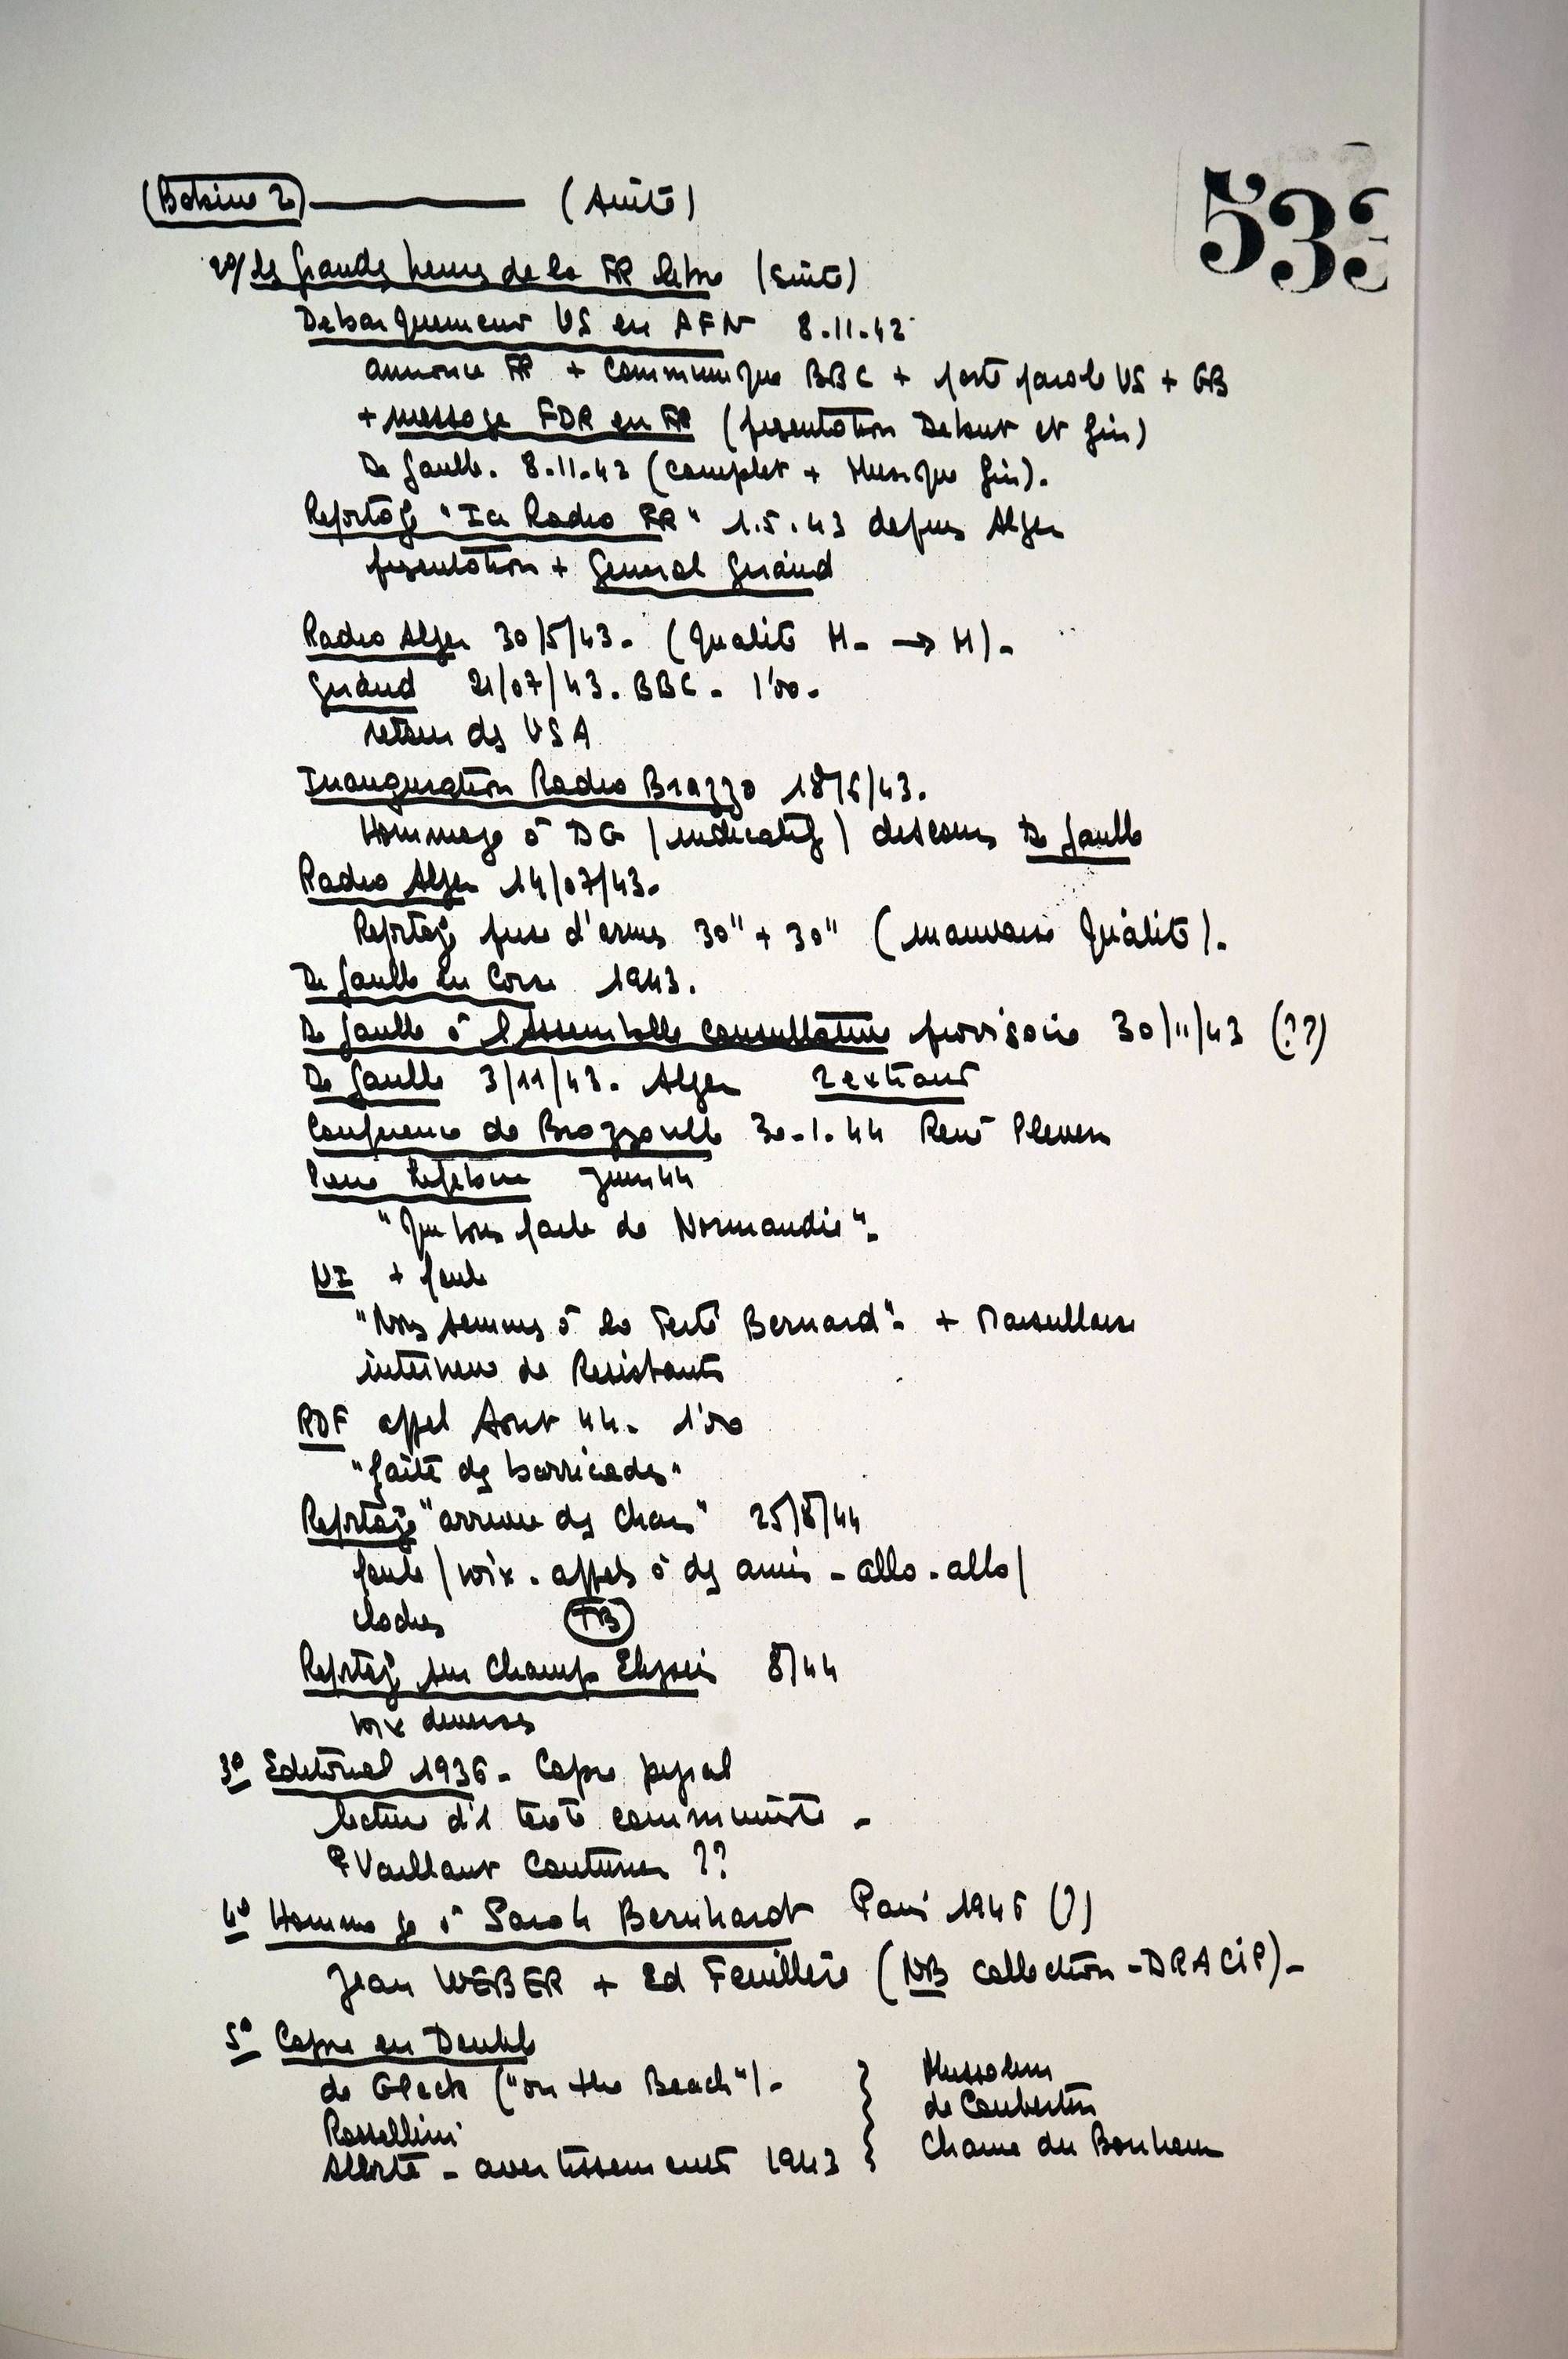 (Bobine 2) (suite)
533
2°/ les grandes heures de la FR libre (suite)
Debarquement US en AFN 8.11.42
annonce FR + Communique BBC + porte parole US + GB
+ message FDR en FR (presentation Debut et fin)
De Gaulle. 8.11.42 (complet + Musique fin).
Reportage "Ici Radio FR" 1.5.43 depuis Alger
presentation + General Giraud
Radio Alger 30/5/43. (Qualité M- → M)-
Giraud 21/07/43. BBC - 1'00.
retour des USA
Inauguration Radio Brazza 18/6/43.
Hommage à DG (indicatif) discours De Gaulle
Radio Alger 14/07/43.
Reportage prise d'armes 30" + 30" (mauvaise Qualité).
De Gaulle en Corse 1943.
De Gaulle à l'Assemblée consultative provisoire 30/11/43 (??)
De Gaulle 3/11/43. Alger 2 extraits
Conférence de Brazzaville 30.1.44 René Pleven
Pierre Lefebvre Juin 44
"Qui vous parle de Normandie".
NI + foule
"Nous sommes à la Ferté Bernard". + Marseillaise
interviews de Resistants
RDF appel Aout 44. 1'50
"faites des barricades"
Reportage "arrivée des chars" 25/8/44
foule / voix . appels à des amis - allo . allo /
cloches (TB)
Reportage sur Champs Elysées 8/44
voix diverses
3° Editorial 1936 - Copie
lecture d'1 texte communiste -
P Vaillant Couturier ??
4° Hommage à Sarah Bernhardt Paris 1946 (?)
Jean WEBER + Ed Feuillère (NB collection - DRACIP)-
5° Copie en Double
de GPeck ("on the Beach") -
Rossellini
Alerte - avertissements 1943
Mussolini
de Coubertin
Chaine du Bonheur